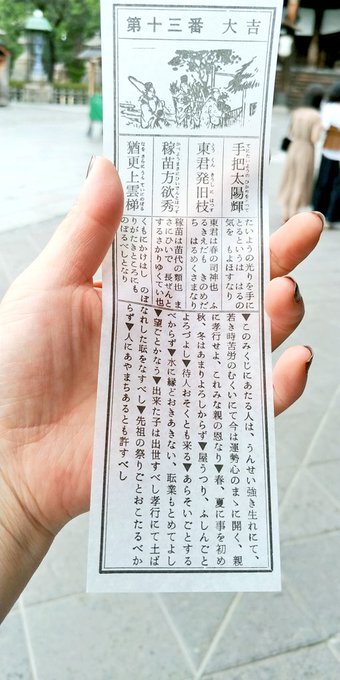 第十三番 大吉
手把太陽輝
東君発旧枝
稼苗方欲秀
猶更上雲梯
たいようの光りを手に
とるというは はるの
気を もよほすなり
東君は春の司神也 ふ
るきえだも きのめだ
ち はるめくさまなり
稼苗は苗代の類也 ま
さにひいで 長ぜんと
するさかりゆくてい也
くもにかけはし のぼ
りがたきところにも
のぼるべしとなり
▼このみくじにあたる人は、うんせい強き生れにて、
若き時苦労のむくいにて今は運勢心のまゝに開く、親
に孝行せよ、これみな親の恩なり▼春、夏に事を初め
秋、冬はあまりよろしからず▼屋うつり、ふしんごと
よろづよし▼待人おそくとも来る▼あらそいごとする
べからず▼水に縁どおきあきない、耺業もとめてよし
▼望ごとかなう▼出来た子は出世すべし孝行にて土ば
なれした耺をなすべし▼先祖の祭りごとおこたるべか
らず▼人にあやまちあるとも許すべし